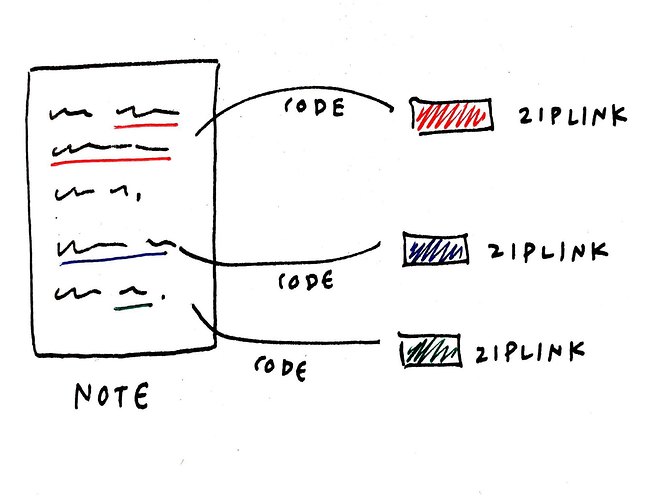 CODE
ZIPLINK
ZIPLINK
CODE
ZIPLINK
CODE
NOTE